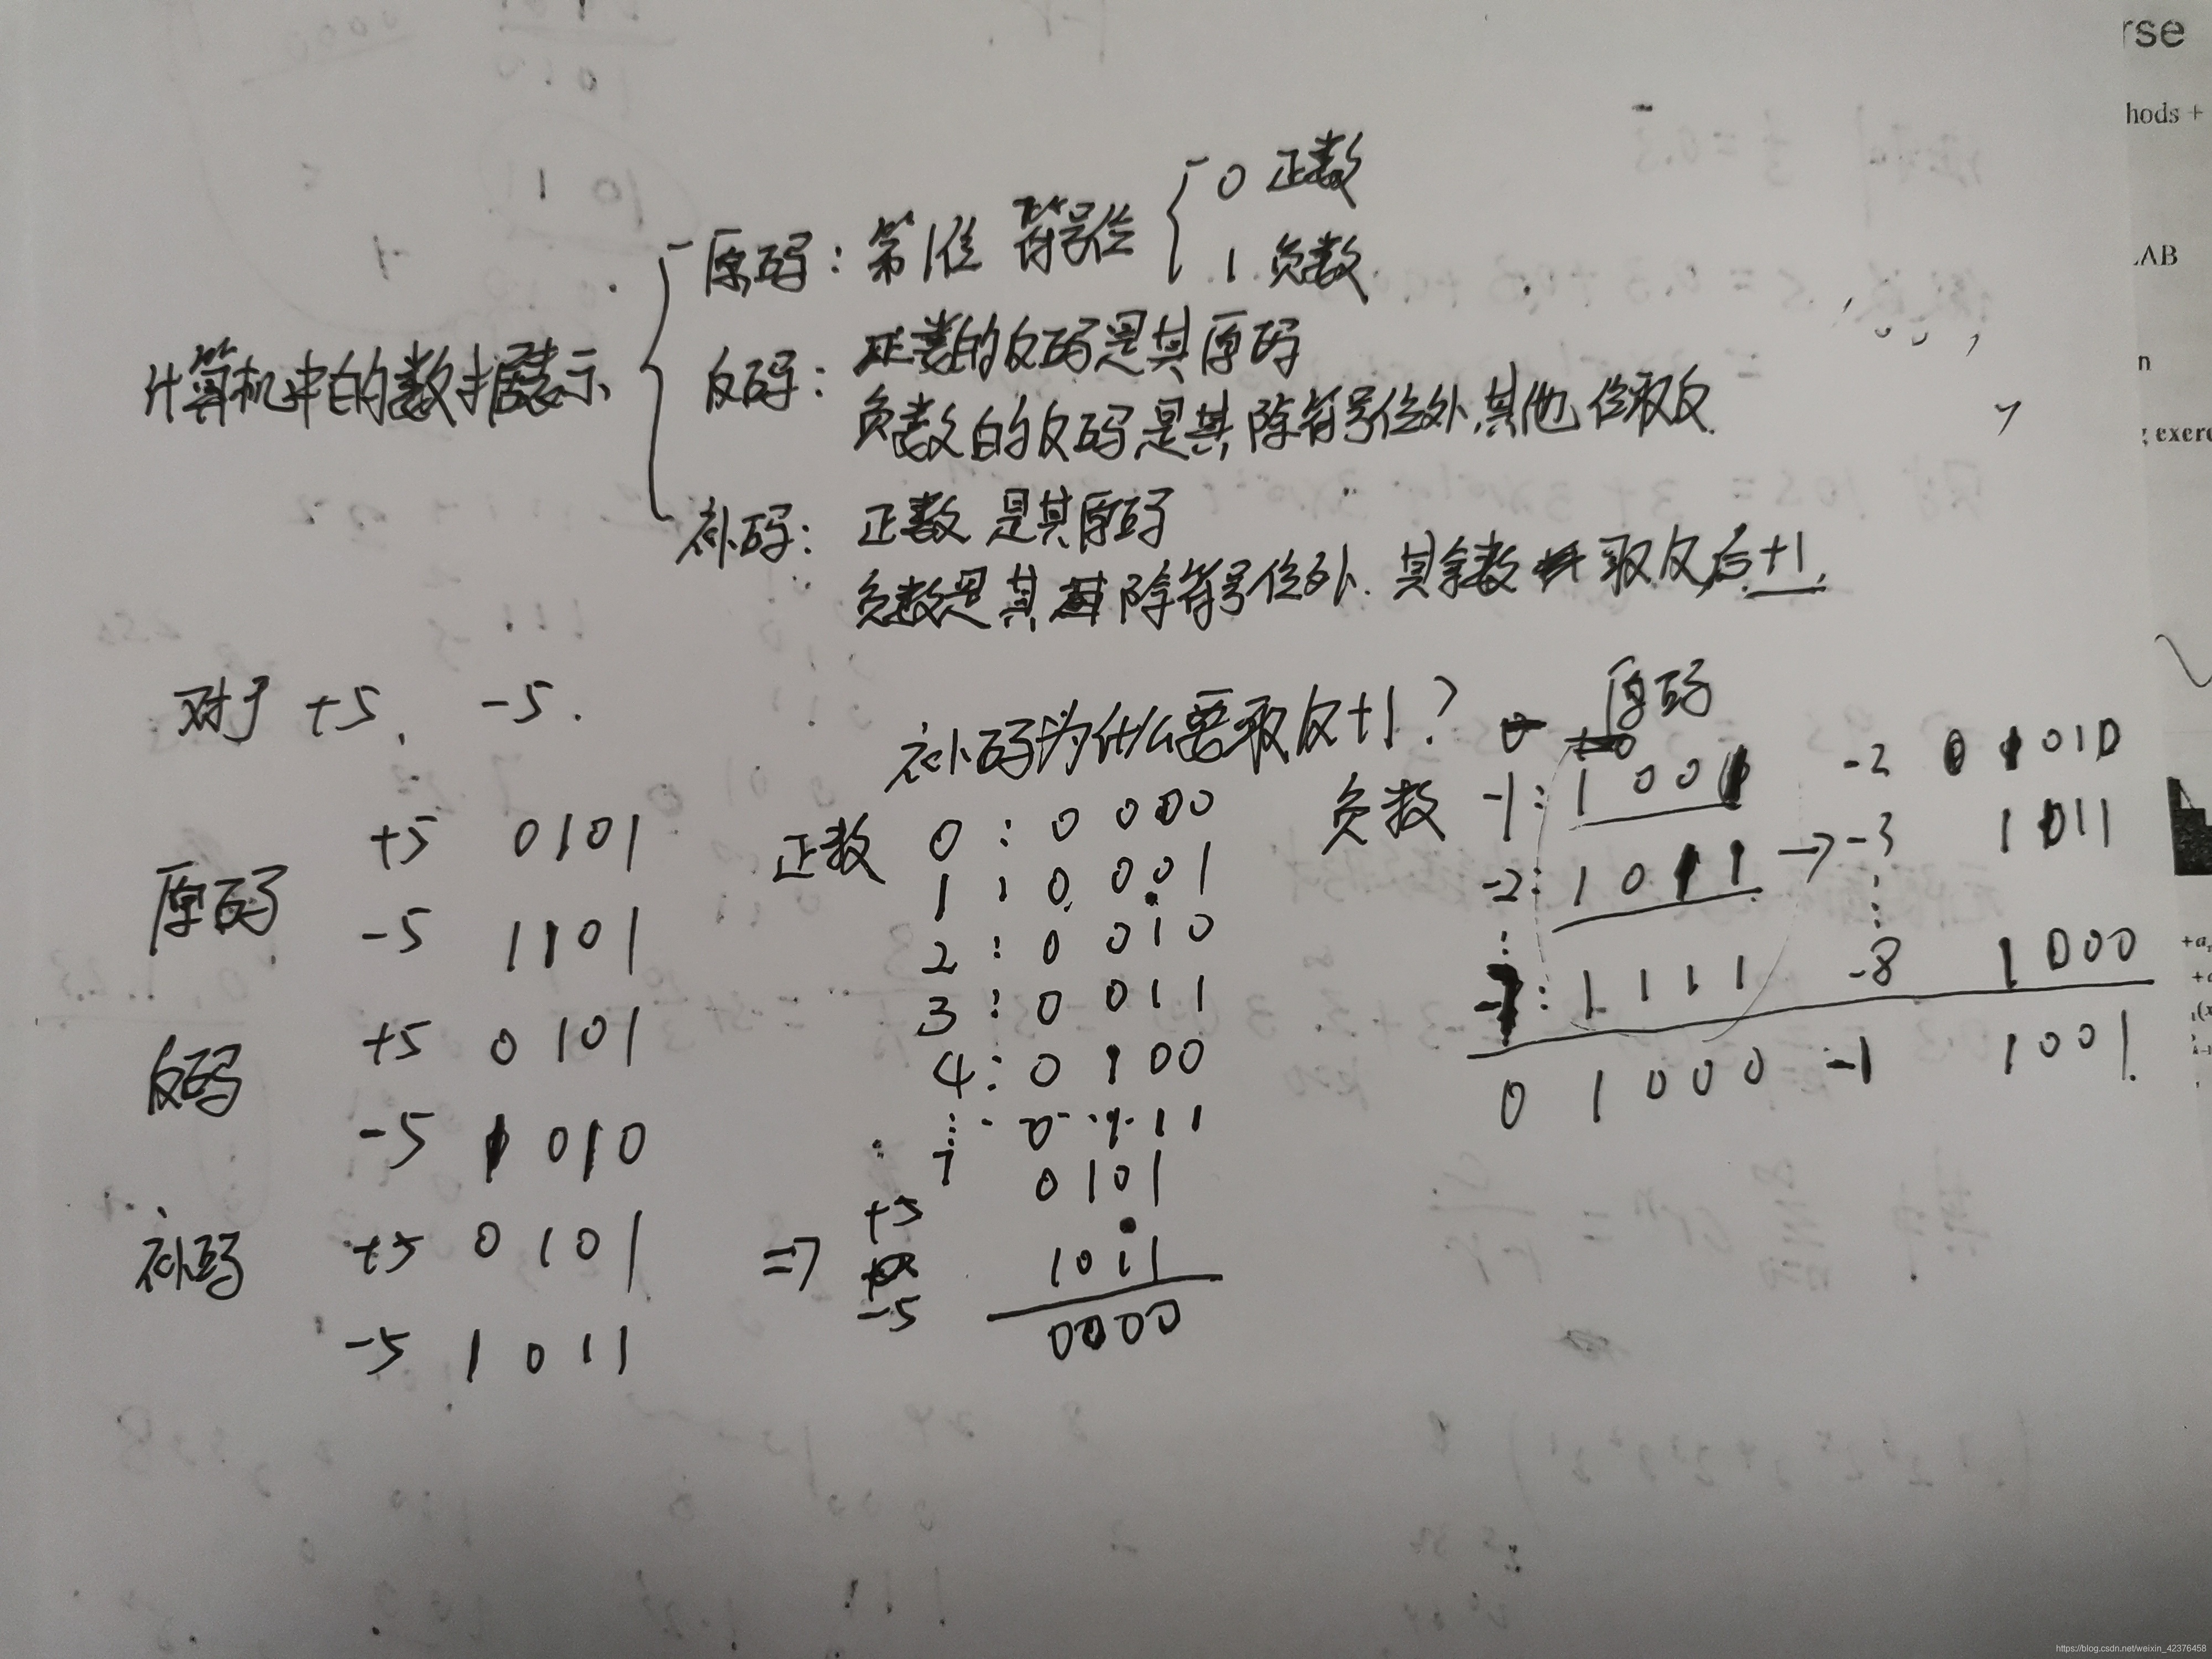 rse
hods +
LAB
n
g exerc
计算机中的数据表示
原码：第1位 符号位
0 正数
1 负数
反码：正数的反码是其原码
负数的反码是其除符号位外,其他位取反.
补码：正数是其原码
负数是其除符号位外.其余数取反后+1.
对于 +5、 -5.
原码 +5 0101
-5 1101
反码 +5 0101
-5 1010
补码 +5 0101
-5 1011
补码为什么要取反+1？
正数 0 : 0 000
1 : 0 001
2 : 0 010
3 : 0 011
4 : 0 100
7 0 111
=> +5 0101
-5 1011
0000
原码
负数 -1: 1001
-2: 1011 → -3 1011
: 1111 -8 1000
0 1000 -1 1001.
https://blog.csdn.net/weixin_42376458